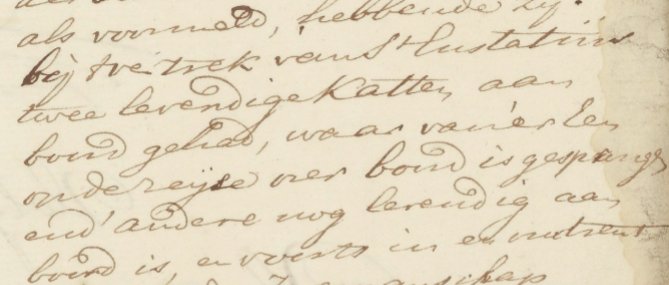 als voormeld, hebbende zij
bij 't vertrek van St Eustatius
twee levendige Katten aan
boord gehad, waar van 'er Een
op de reijse over boord is gesprongen
end' andere nog levendig aan
boord is, en voorts in